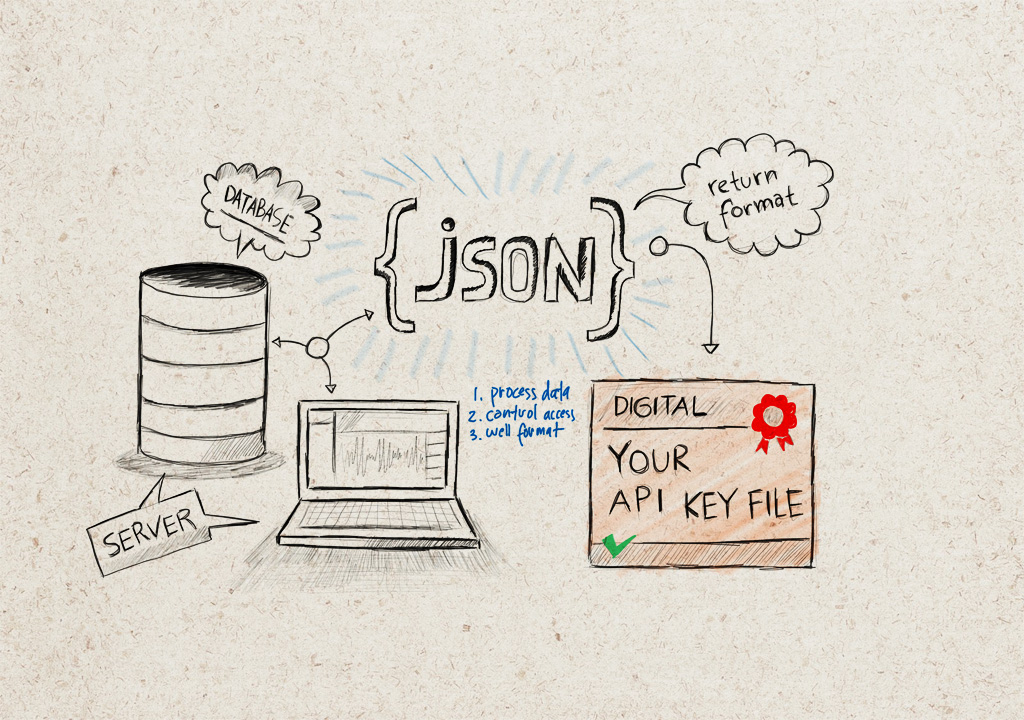 DATABASE
{json}
return
format
1. process data
2. control access
3. well format
DIGITAL
YOUR
API KEY FILE
SERVER